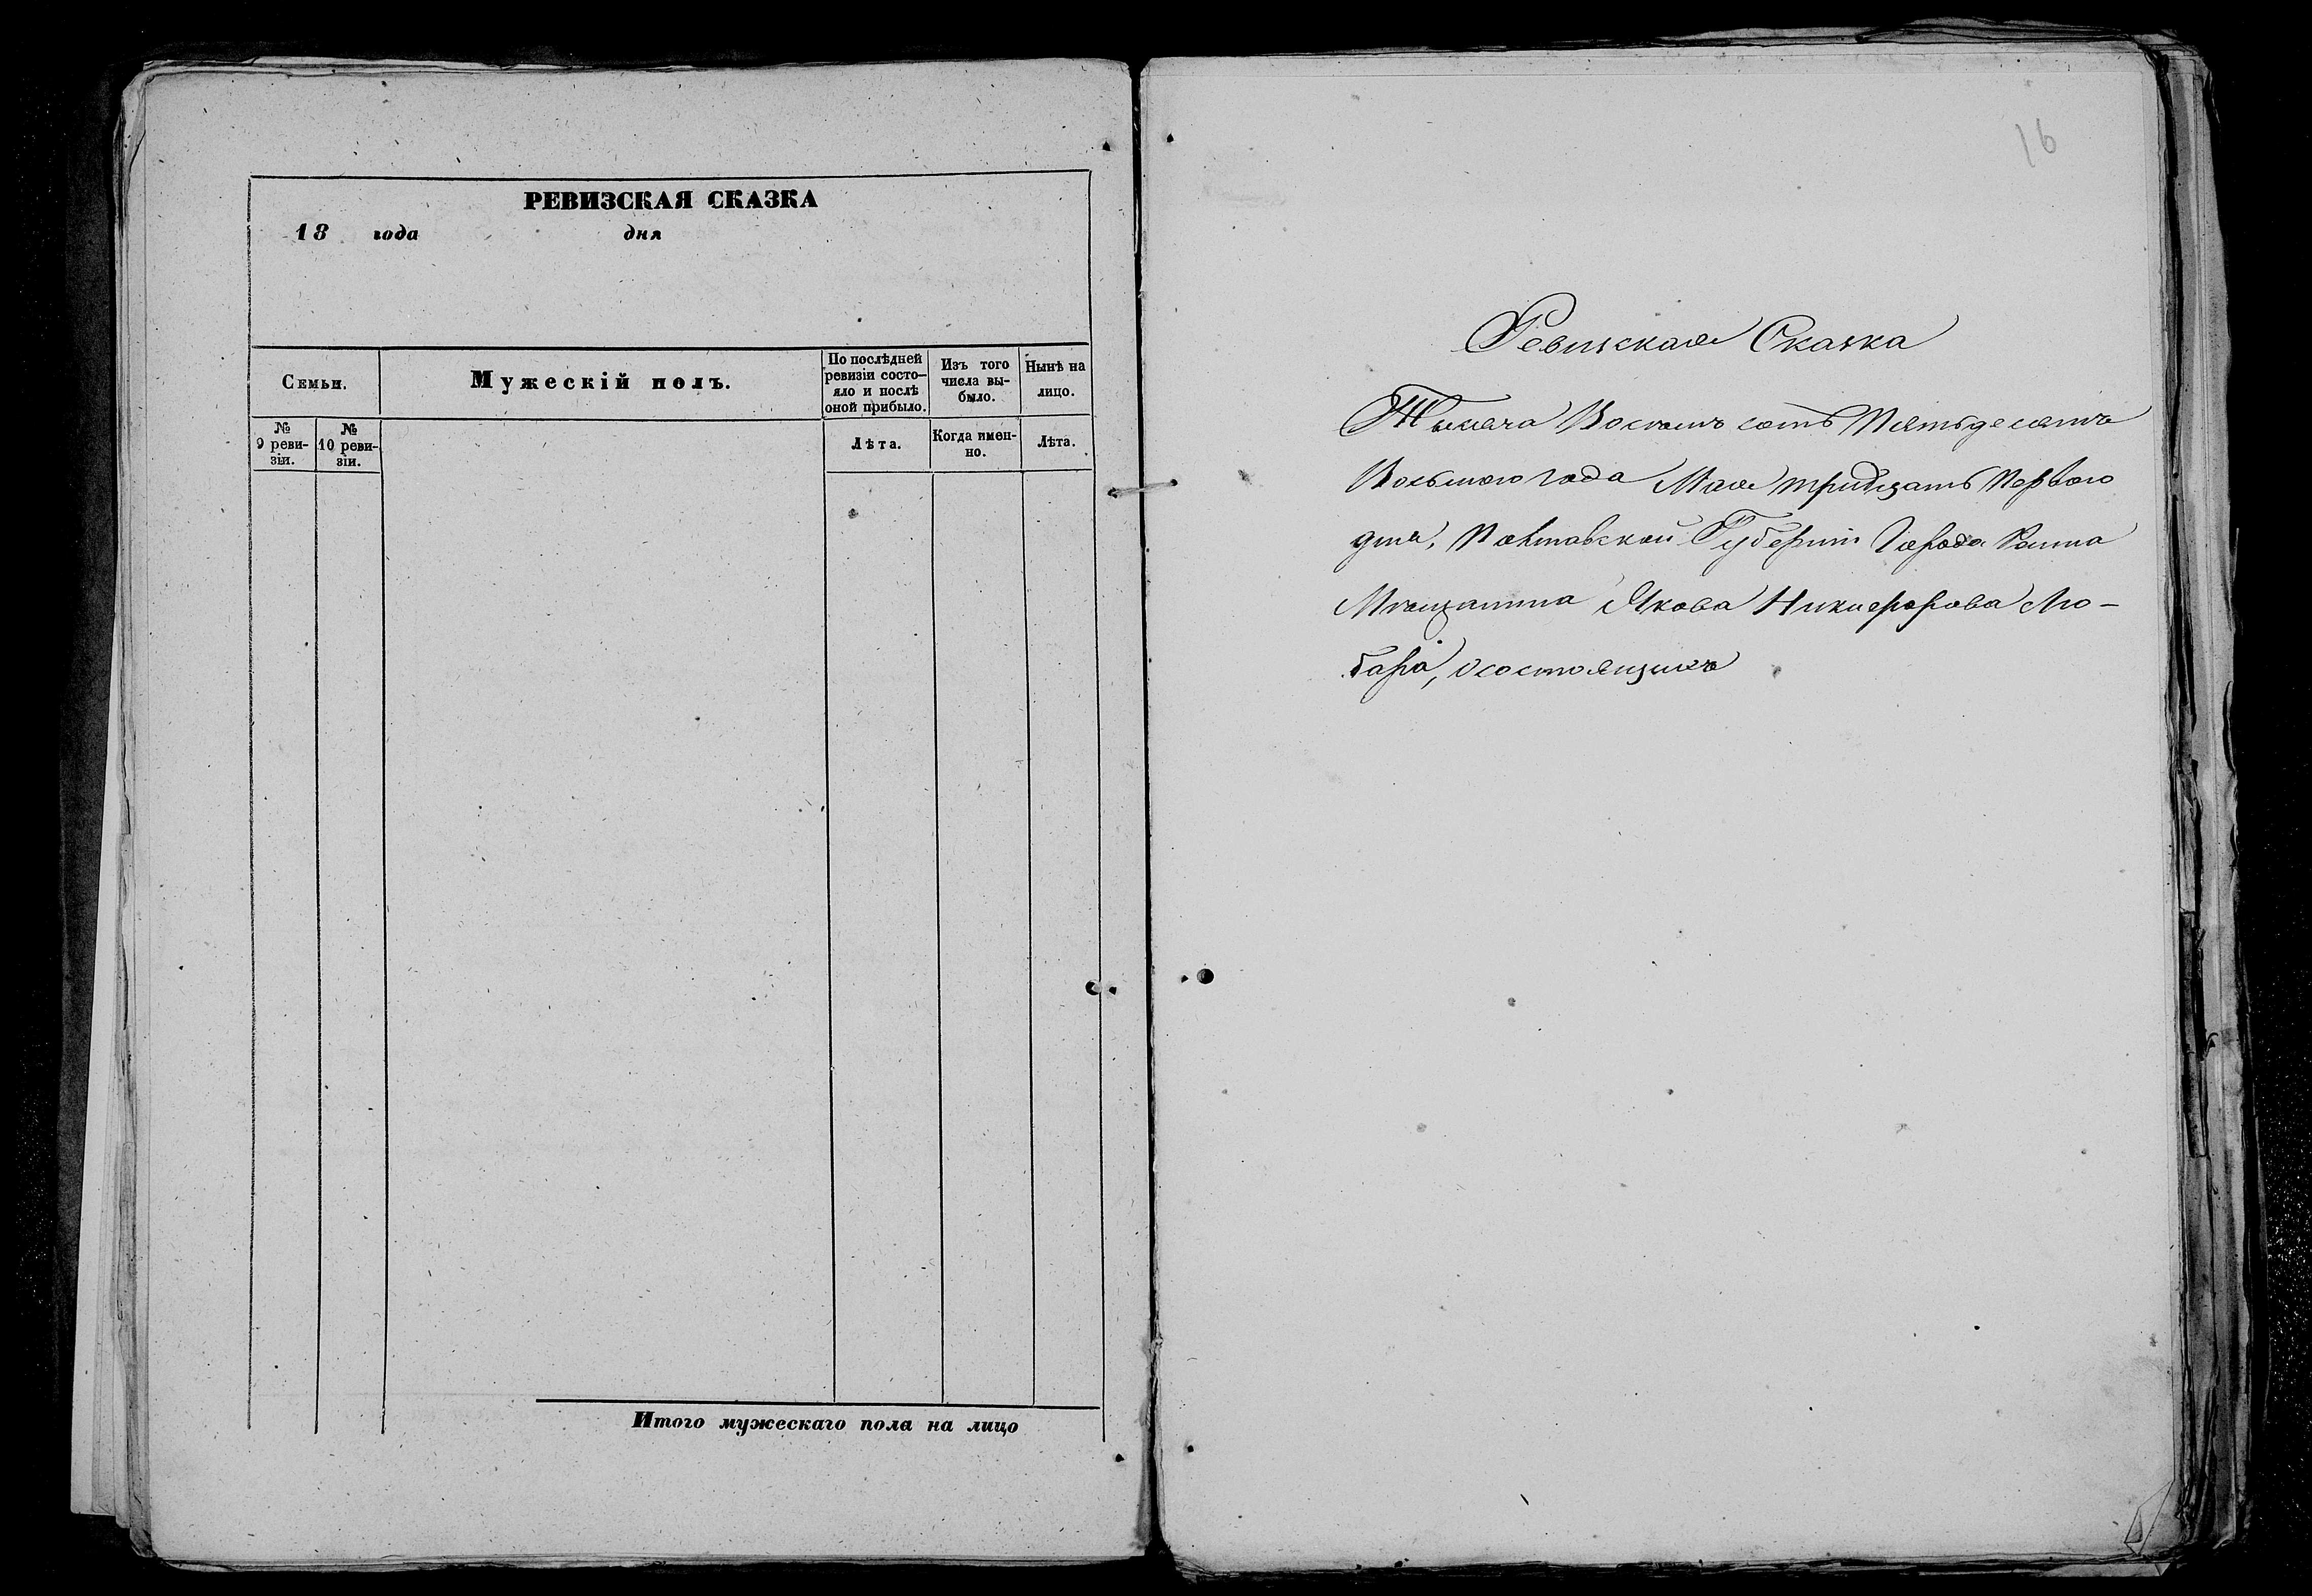 РЕВИЗСКАЯ СКАЗКА
18 года дня
Семьи.
Мужескій полъ.
По послѣдней
ревизіи состо-
яло и послѣ
оной прибыло.
Изъ того
числа вы-
было.
Нынѣ на
лицо.
№
9 реви-
зіи.
№
10 реви-
зіи.
Лѣта.
Когда имен-
но.
Лѣта.
Итого мужескаго пола на лицо
16
Ревизская Сказка
Тысяча Восемь сотъ Пятьдесятъ
Восьмого года Мая тридцать Первого
дня, Полтавской Губерніи Города Ромна
Мѣщанина Якова Никифорова Лю-
бара, о состоящихъ